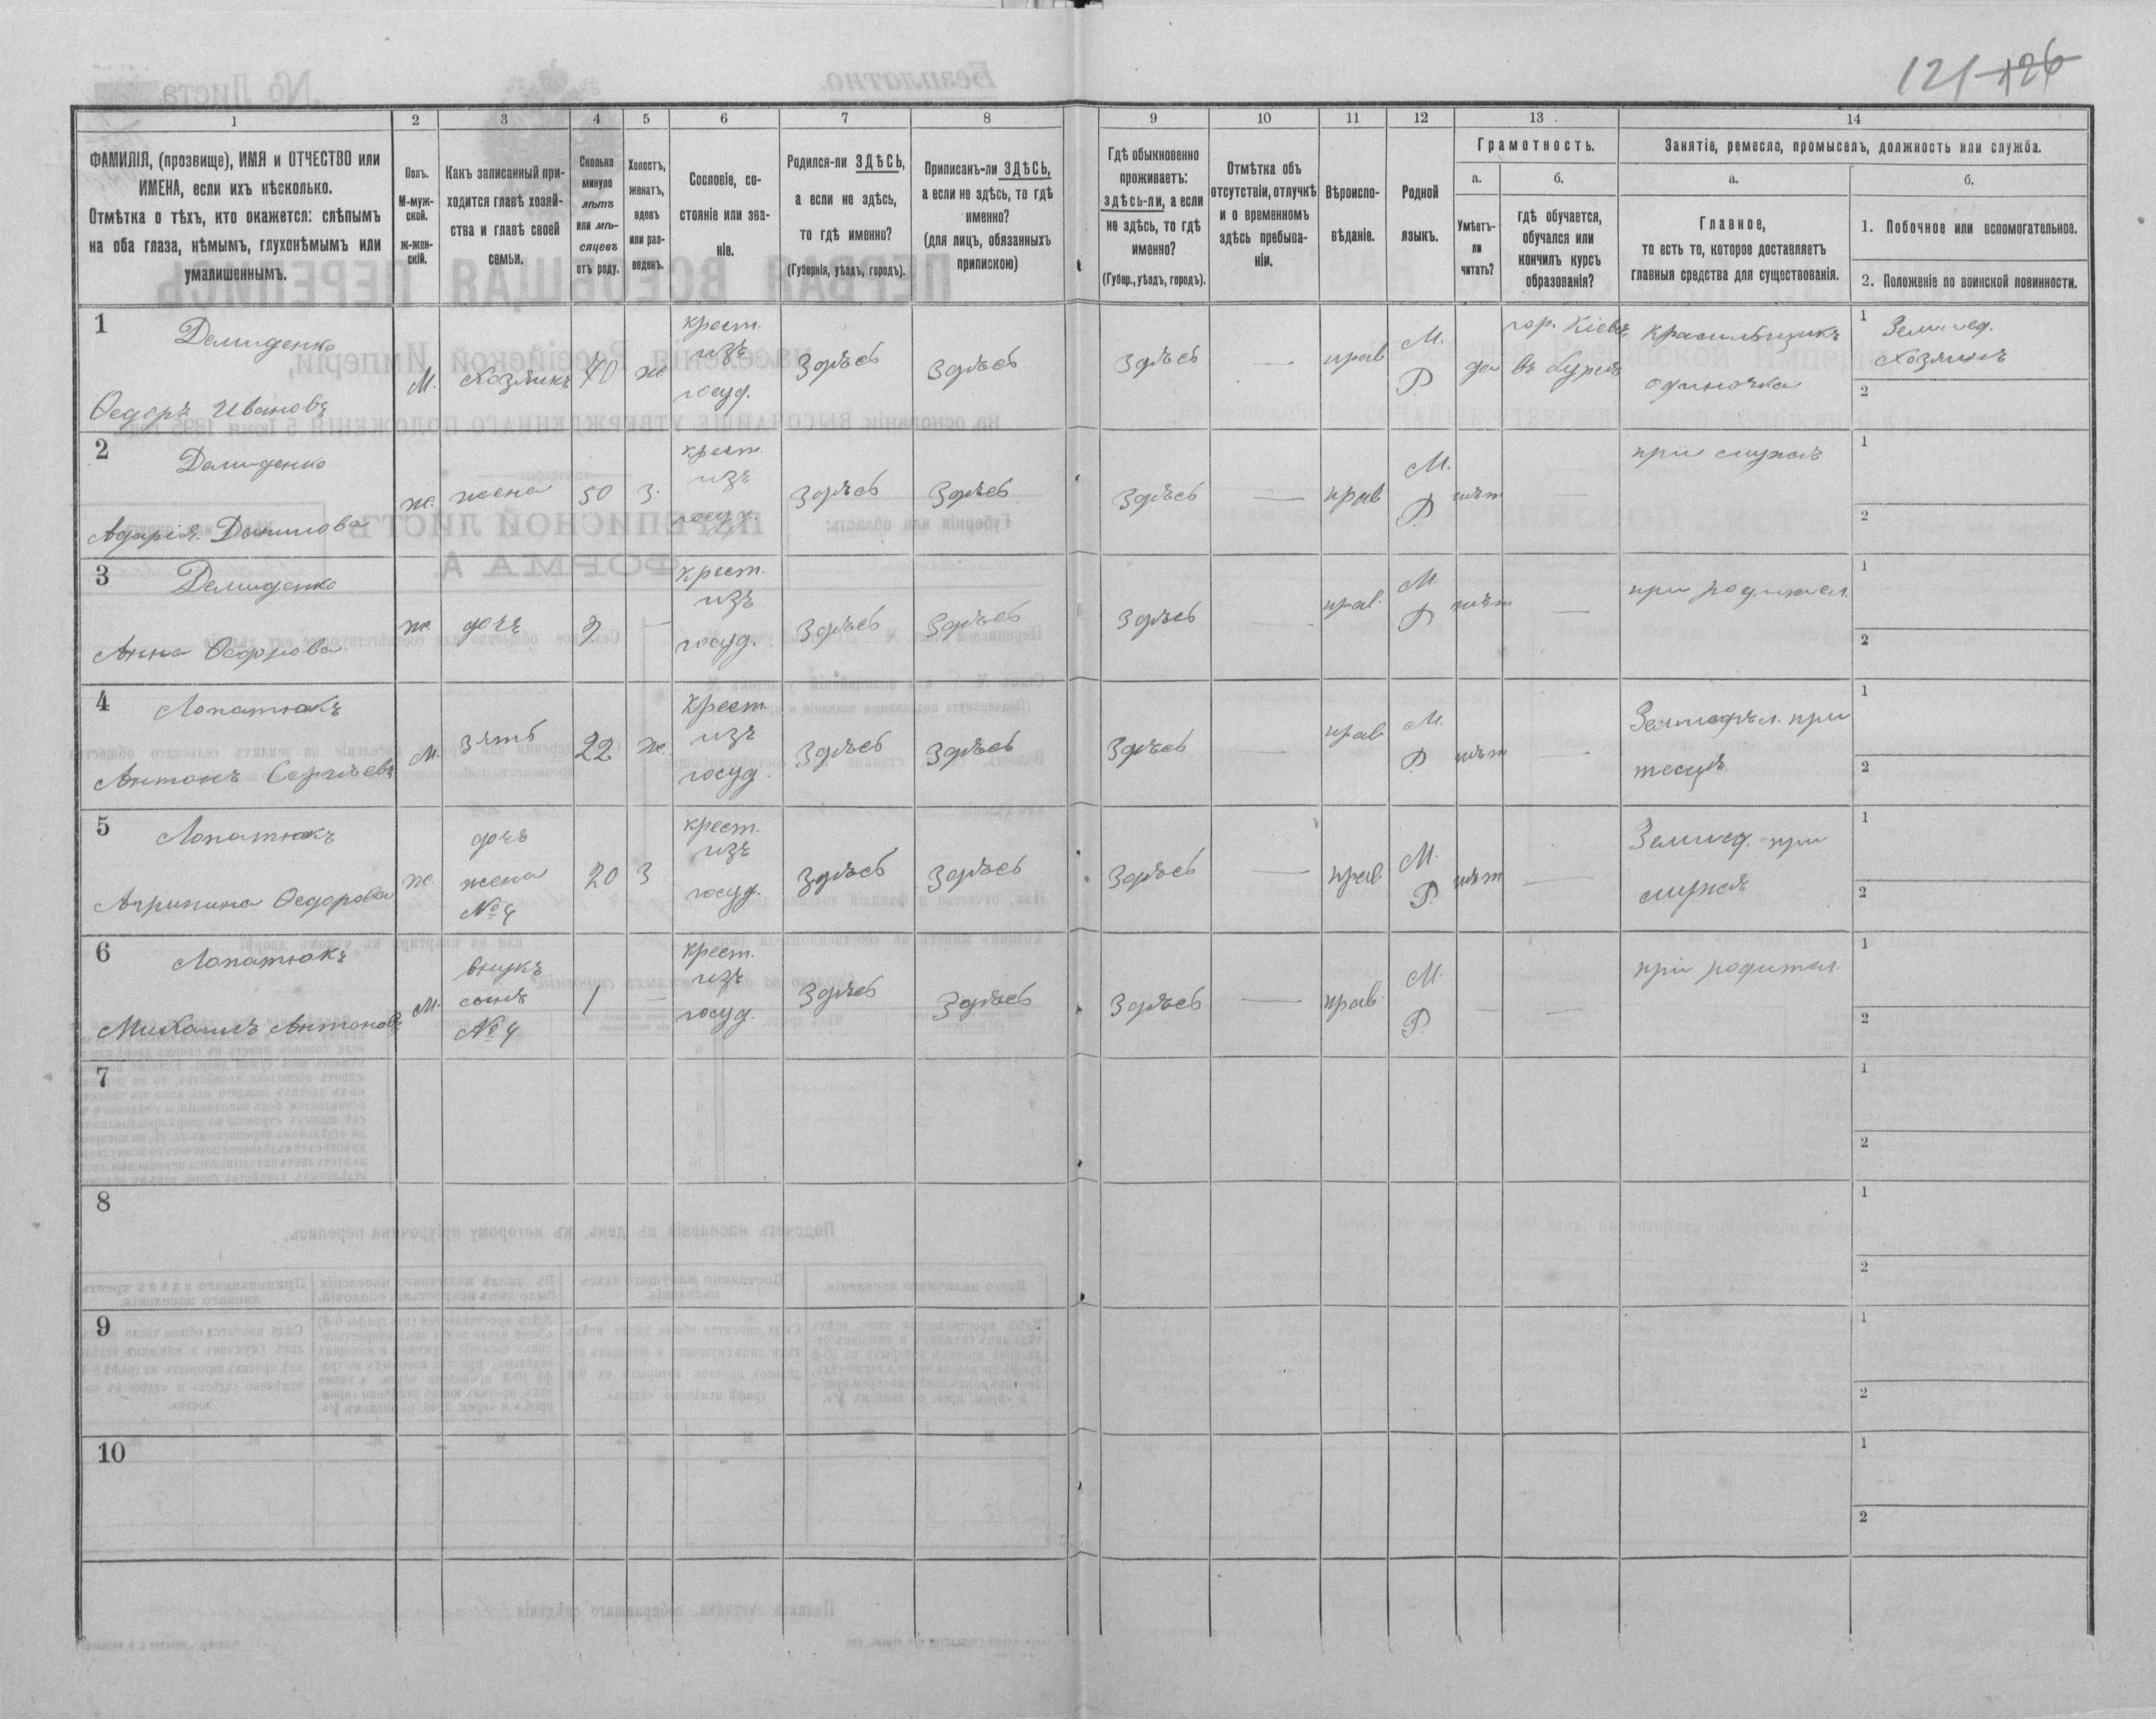 121 126
1 2 3 4 5 6 7 8 9 10 11 12 13 14
ФАМИЛІЯ, (прозвище), ИМЯ и ОТЧЕСТВО или
ИМЕНА, если ихъ нѣсколько.
Отмѣтка о тѣхъ, кто окажется: слѣпымъ
на оба глаза, нѣмымъ, глухонѣмымъ или
умалишеннымъ.
Полъ.
М-муж-
ской.
ж-жен-
скій.
Какъ записанный при-
ходится главѣ хозяй-
ства и главѣ своей
семьи.
Сколько
минуло
лѣтъ
или мѣ-
сяцевъ
отъ роду.
Холостъ,
женатъ,
вдовъ
или раз-
веденъ.
Сословіе, со-
стояніе или зва-
ніе.
Родился-ли ЗДѢСЬ,
а если не здѣсь,
то гдѣ именно?
(Губернія, уѣздъ, городъ).
Приписанъ-ли ЗДѢСЬ,
а если не здѣсь, то гдѣ
именно?
(для лицъ, обязанныхъ
припискою)
Гдѣ обыкновенно
проживаетъ:
здѣсь-ли, а если
не здѣсь, то гдѣ
именно?
(Губер., уѣздъ, городъ).
Отмѣтка объ
отсутствіи, отлучкѣ
и о временномъ
здѣсь пребыва-
ніи.
Вѣроиспо-
вѣданіе.
Родной
языкъ.
Грамотность.
а.
Умѣетъ-
ли
читать?
б.
гдѣ обучается,
обучался или
кончилъ курсъ
образованія?
Занятіе, ремесло, промыселъ, должность или служба.
а.
Главное,
то есть то, которое доставляетъ
главныя средства для существованія.
б.
1. Побочное или вспомогательное.
2. Положеніе по воинской повинности.
1
Демиденко
Ѳедоръ Ивановъ
М.
Хозяинъ
40
ж
крест.
изъ
госуд.
Здѣсь
Здѣсь
Здѣсь
—
прав
М.
Р.
да
гор. Кіевъ
Красильщикъ
одиночка
1 Землед.
Хозяинъ
2
2
Демиденко
Данилова
ж.
жена
50
з.
крест.
изъ
госуд.
Здѣсь
Здѣсь
Здѣсь
—
прав
М.
Р.
нѣт
—
при мужѣ
1
2
3
Демиденко
Анна Ѳедорова
ж
дочь
9
—
крест.
изъ
госуд.
Здѣсь
Здѣсь
Здѣсь
—
прав.
М.
Р.
нѣт
—
при родител.
1
2
4
Лопатюкъ
Антонъ Сергѣевъ
М.
зять
22
ж.
крест.
изъ
госуд.
Здѣсь
Здѣсь
Здѣсь
—
прав.
М.
Р.
нѣт
—
Земледѣл. при
тестѣ
1
2
5
Лопатюкъ
Агрипина Ѳедорова
ж.
дочь
жена
№ 4
20
з
крест.
изъ
госуд.
Здѣсь
Здѣсь
Здѣсь
—
прав.
М.
Р.
нѣт
—
Землед. при
мужѣ
1
2
6
Лопатюкъ
Михаилъ Антоновъ
М.
внукъ
сынъ
№ 4
1
—
крест.
изъ
госуд.
Здѣсь
Здѣсь
Здѣсь
—
прав.
М.
Р.
—
—
при родител.
1
2
7
1
2
8
1
2
9
1
2
10
1
2